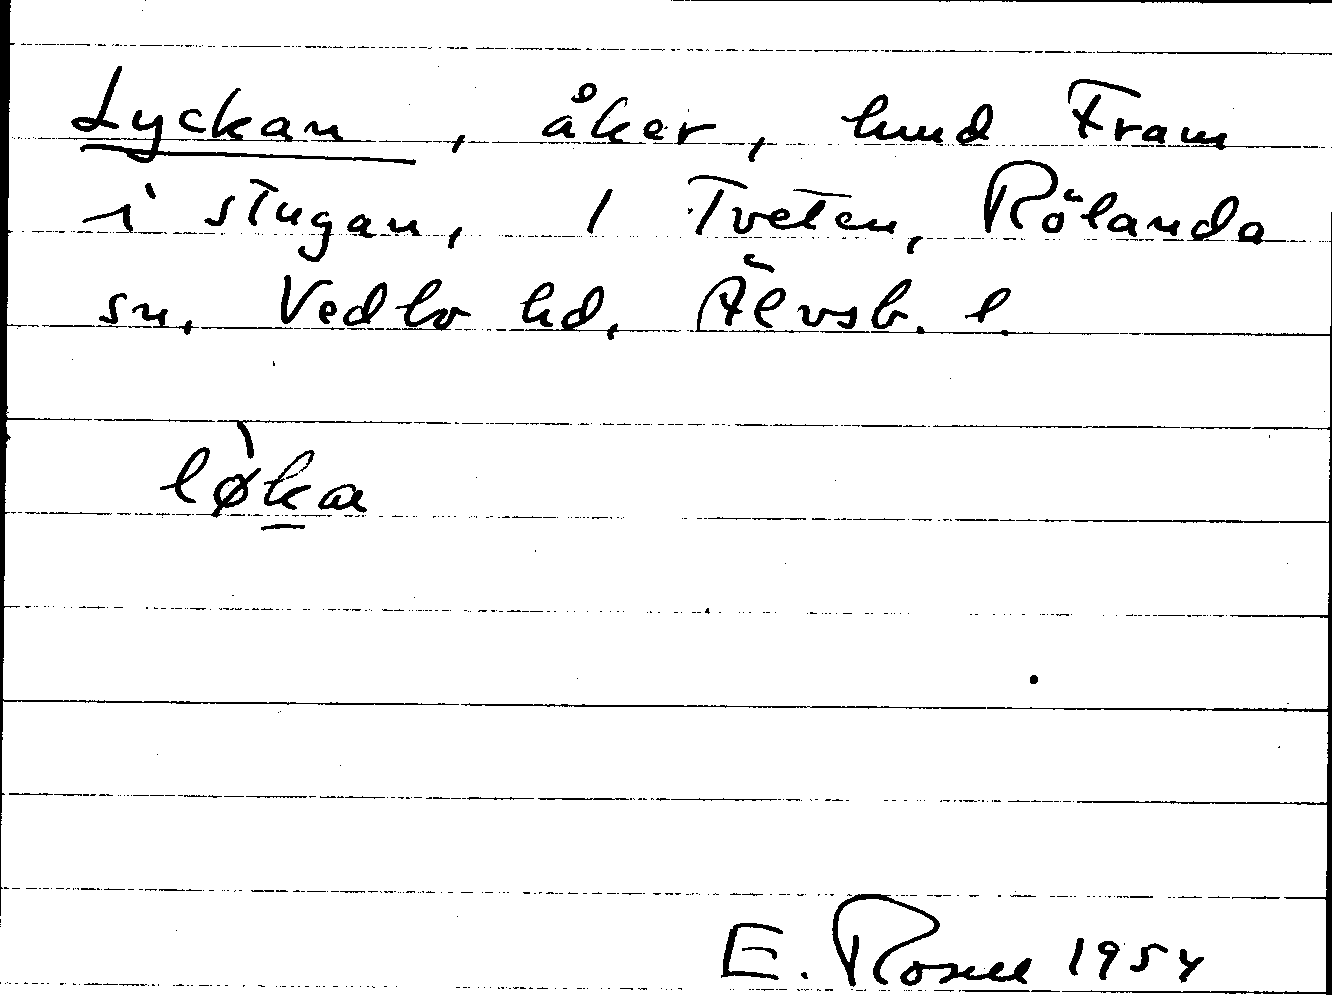 Lyckan, åker, hmd Fram
i stugan, 1 Tveten, Rölanda
sn, Vedbo hd, Älvsb. l.
lø̀ka
E. Rosell 1954